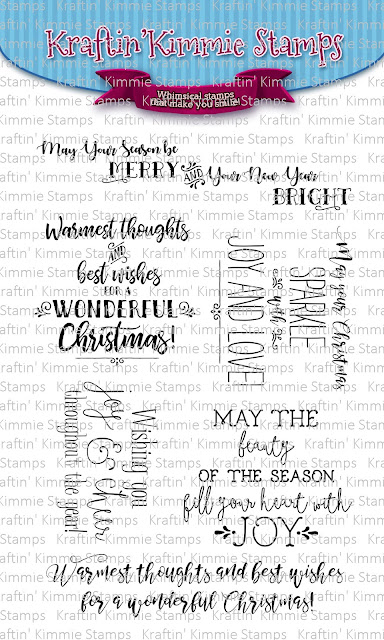 Kraftin'Kimmie Stamps
Whimsical stamps
that make you smile!
May Your Season be
MERRY
AND Your New Year
BRIGHT
Warmest thoughts
AND
best wishes
FOR A
WONDERFUL
Christmas!
May your Christmas
SPARKLE
with
JOY AND LOVE
Wishing you
joy & cheer
throughout the year
MAY THE
beauty
OF THE SEASON
fill your heart with
JOY
Warmest thoughts and best wishes
for a wonderful Christmas!